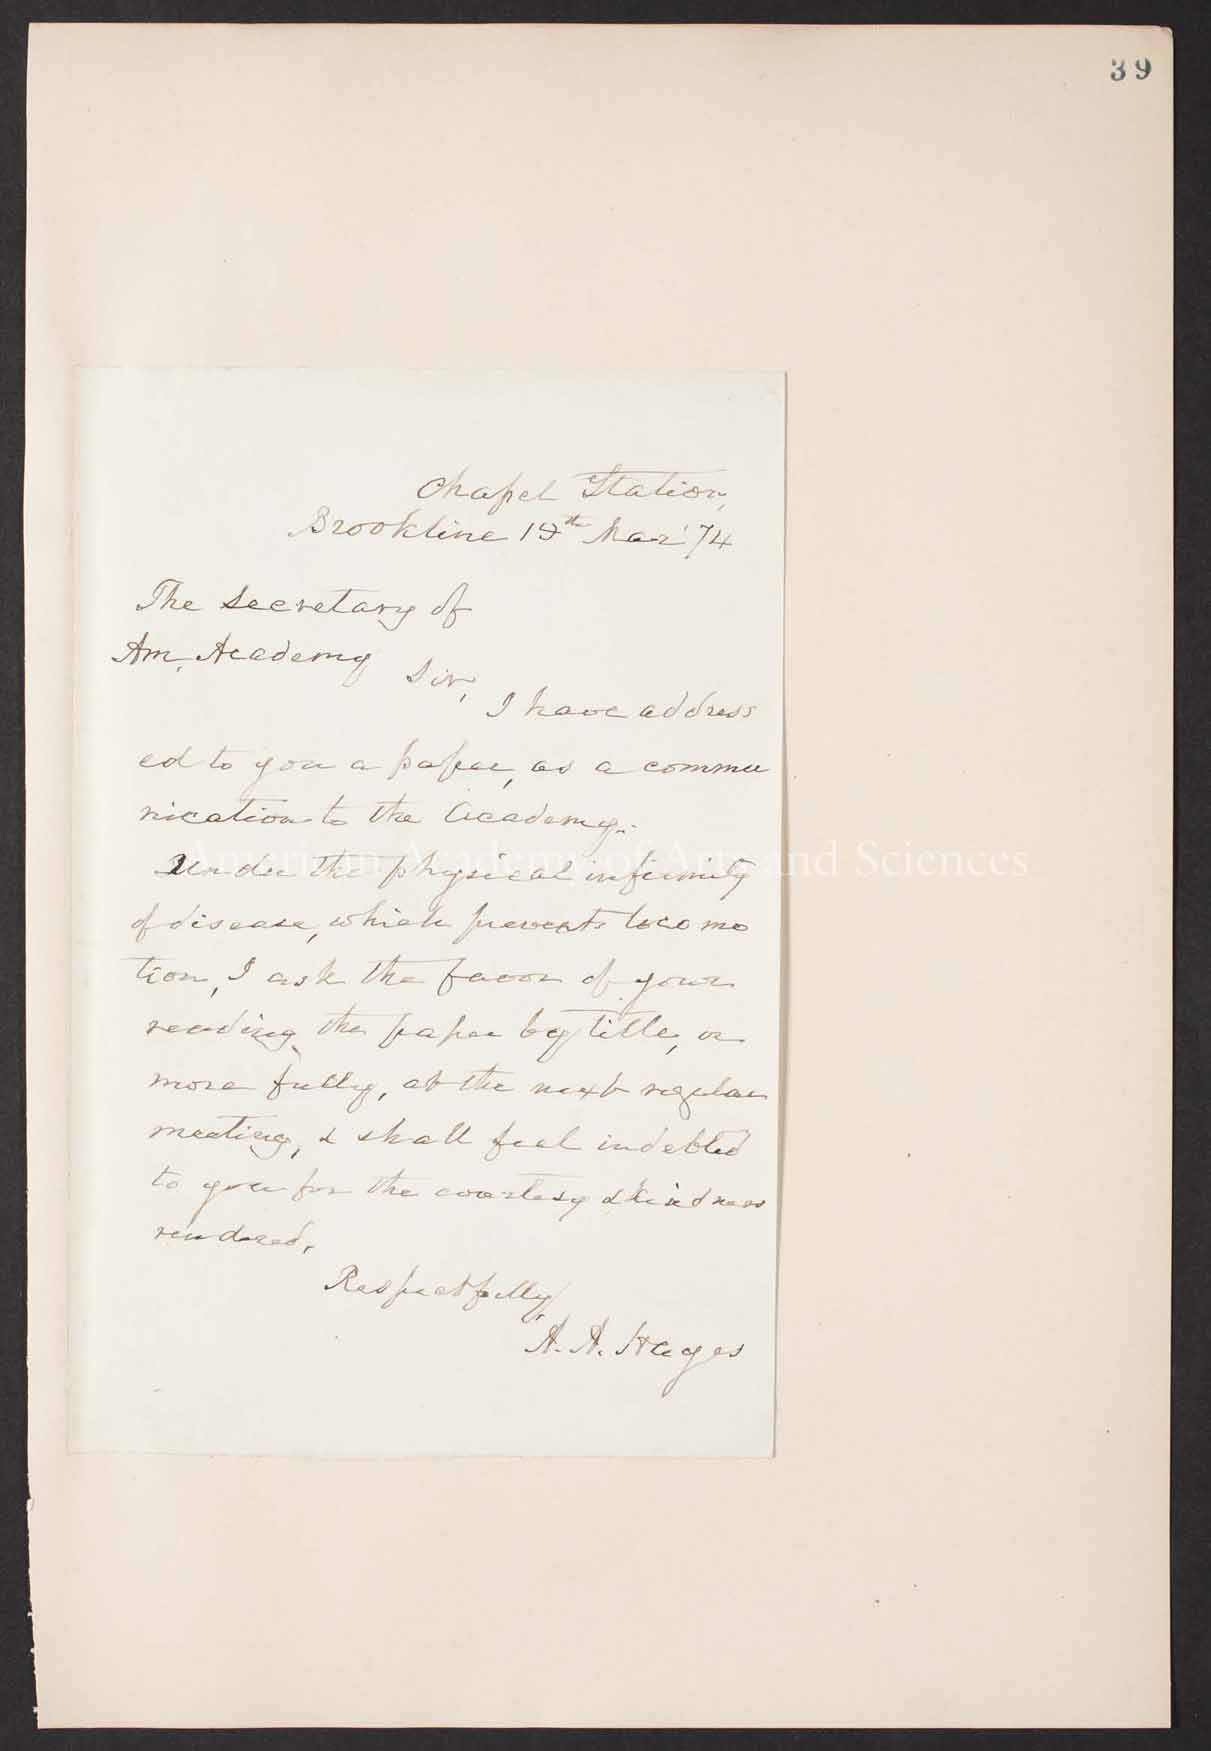 39
Chapel Station,
Brookline 19th Mar '74
The Secretary of
Am. Academy
Sir,
I have address
ed to you a paper, as a commu
nication to the Academy.
American Academy of Arts and Sciences
Under the physical infirmity
of disease, which prevents locomo
tion, I ask the favor of your
reading the paper by title, or
more fully, at the next regular
meeting, & shall feel indebted
to you for the courtesy & kindness
rendered.
Respectfully,
A. A. Hayes